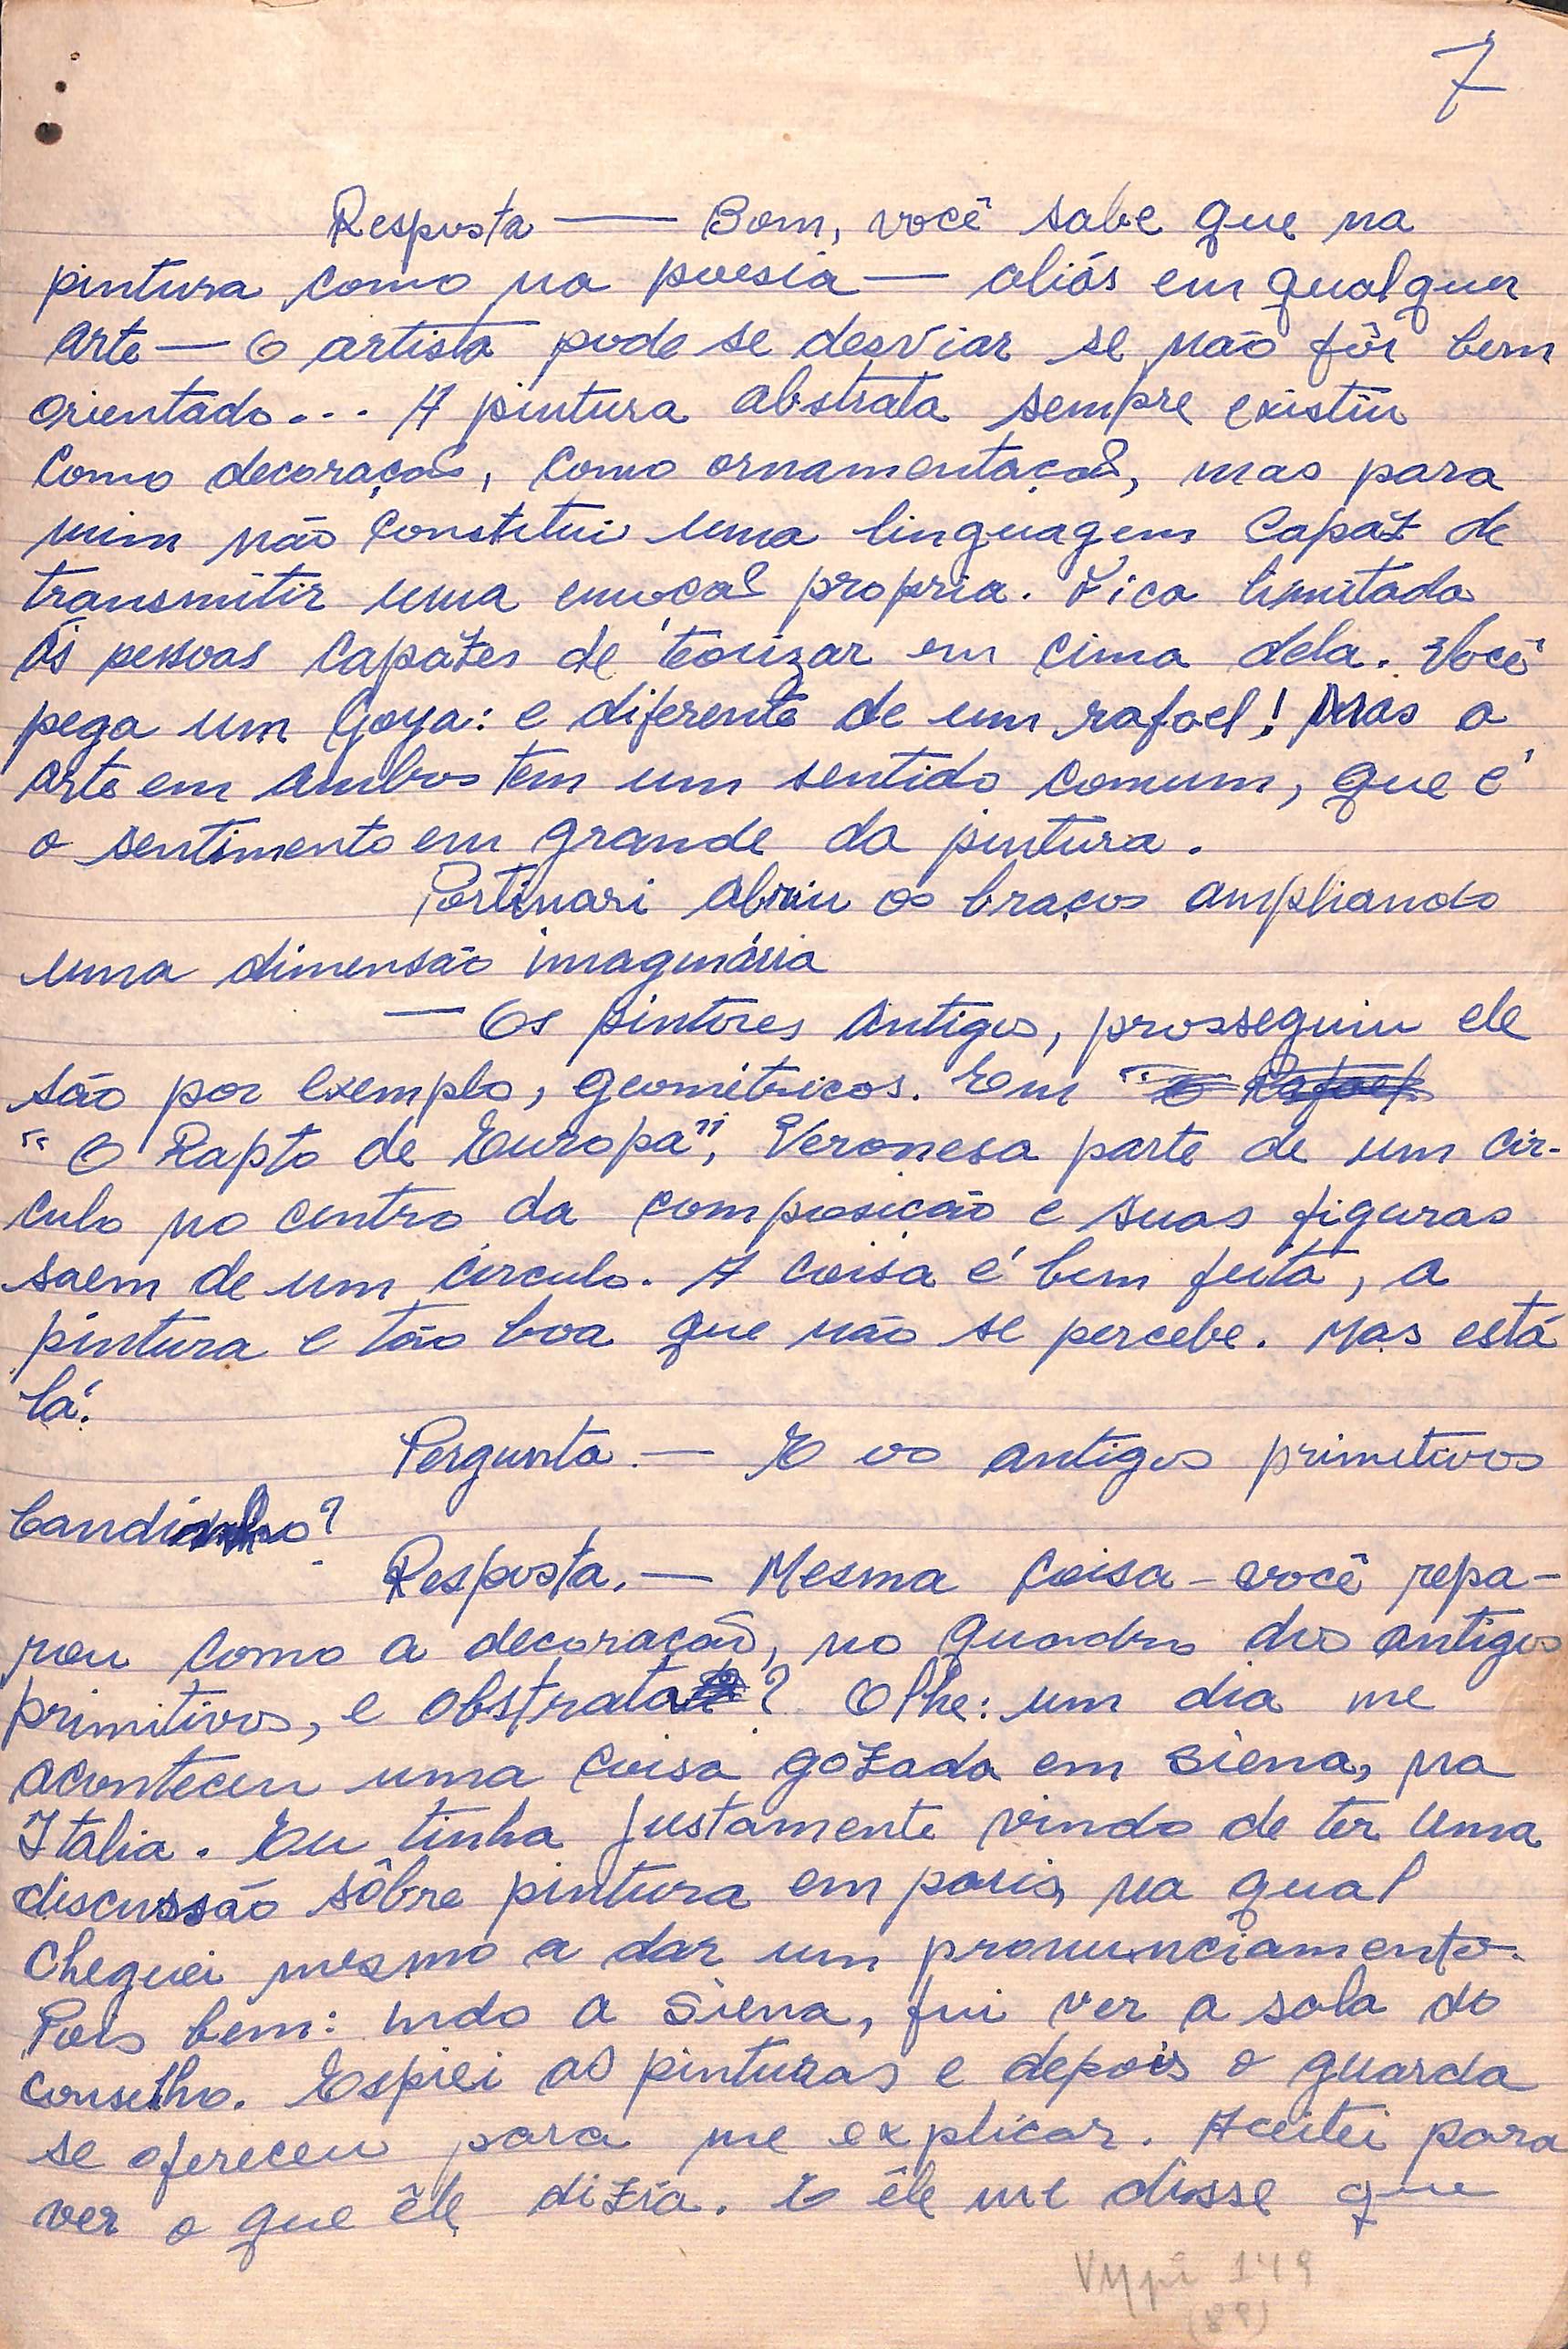 7
Resposta — Bom, você sabe que na
pintura como na poesia — aliás em qualquer
arte — o artista pode se desviar se não fôr bem
orientado... A pintura abstrata sempre existiu
como decoração, como ornamentação, mas para
mim não constitui uma linguagem capaz de
transmitir uma emoção propria. Fica limitada
ás pessoas capazes de teorizar em cima dela. Você
pega um Goya: e diferente de um rafael! Mas a
arte em ambos tem um sentido comum, que é
o sentimento em grande da pintura.
Portinari abriu os braços ampliando
uma dimensão imaginária
— Os pintores antigos, prosseguiu ele
são por exemplo, geométricos. Em
"O Rapto de Europa", Veronesa parte de um cir-
culo no centro da composicão e suas figuras
saem de um circulo. A coisa é bem feita, a
pintura e tão boa que não se percebe. Mas está
lá.
Pergunta. — E os antigos primitivos
Candinho?
Resposta. — Mesma coisa – você repa-
rou como a decoração, no quadro dos antigos
primitivos, e abstrata? Olhe: um dia me
aconteceu uma coisa gozada em Siena, na
Italia. Eu tinha justamente vindo de ter uma
discussão sôbre pintura em paris, na qual
cheguei mesmo a dar um pronunciamento.
Pois bem: indo a Siena, fui ver a sala do
conselho. Espiei as pinturas e depois o guarda
se ofereceu para me explicar. Aceitei para
ver o que êle dizia. E êle me disse que
149